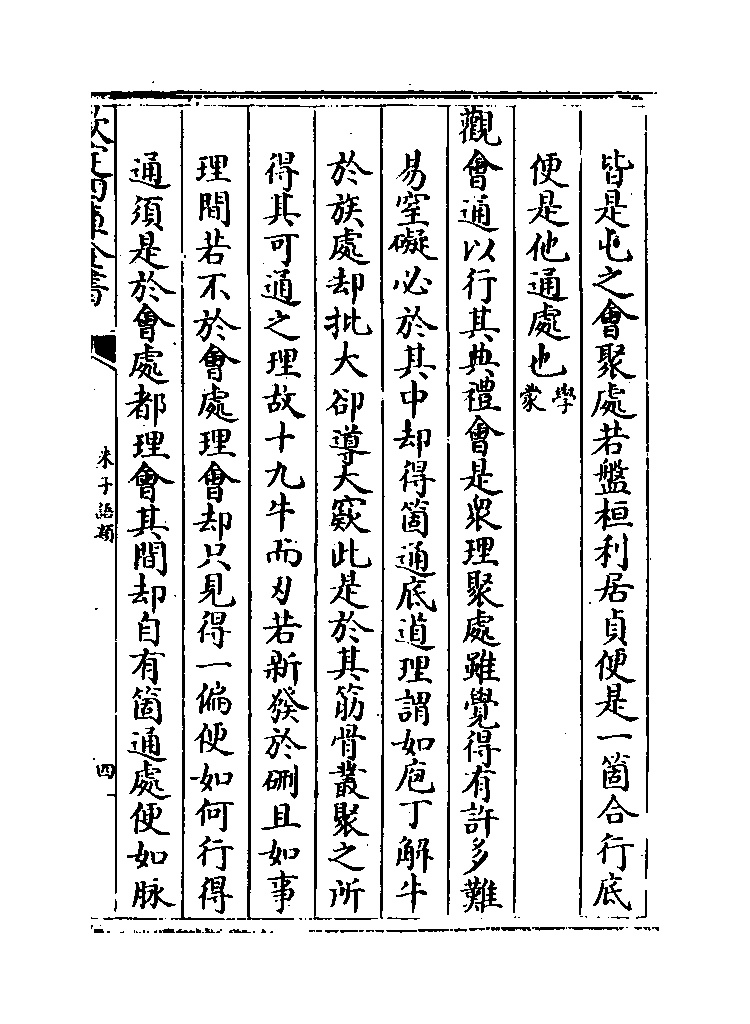 皆是屯之會聚處若盤桓利居貞便是一箇合行底
便是他通處也學蒙
觀會通以行其典禮會是衆理聚處雖覺得有許多難
易窒礙必於其中却得箇通底道理謂如庖丁解牛
於族處却批大郤導大窾此是於其筋骨叢聚之所
得其可通之理故十九牛而刃若新發於硎且如事
理間若不於會處理會却只見得一偏便如何行得
通須是於會處都理會其間却自有箇通處便如脉
欽定四庫全書
朱子語類
四